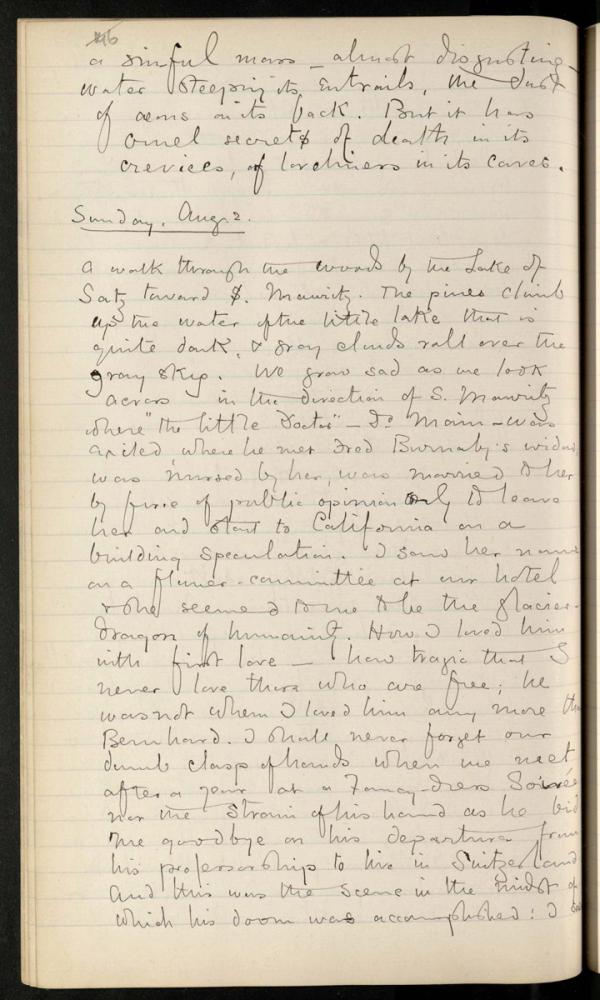 46
a sinful mass – almost disgusting –
water steeping its entrails, the dust
of aeons on its back. But it has
cruel secrets of death in its
crevices, of loveliness in its caves.
Sunday. Aug. 2.
A walk through the woods by the Lake of
Satz toward S. Mauritz. The pines climb
up the water of the little lake that is
quite dark, & gray clouds roll over the
gray sky. We grow sad as we look
across in the direction of S. Mauritz
where "the little Doctor" – Dr Main – was
exiled where he met Fred Burnaby's widow,
was nursed by her, was married to her
by force of public opinion only to leave
her and start to California on a
building speculation. I saw her name
on a flower-committee at our hotel
& she seemed to me to be the glacier-
dragon of humanity. How I loved him
with first love – how tragic that I
never love those who are free; he
was not when I loved him any more than
Bernhard. I shall never forget our
dumb clasp of hands when we met
after a year at a Fancy-dress Soirée
nor the strain of his hand as he bid
me goodbye on his departure from
his professorship to live in Switzerland
And this was the scene in the midst of
which his doom was accomplished: I